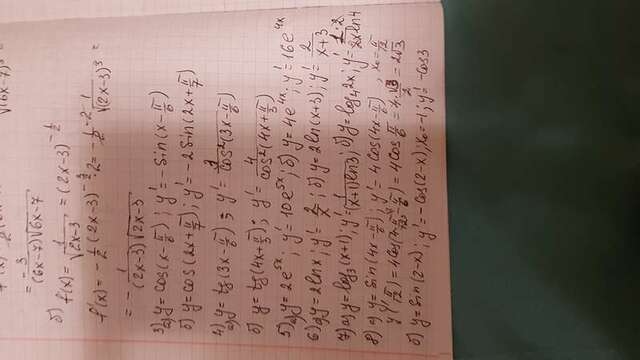 = -3/((6x-7)√6x-7)
б) f(x) = 1/√2x-3 = (2x-3)^(-1/2)
f'(x) = -1/2 (2x-3)^(-3/2) · 2 = -1/2 · 2 1/√(2x-3)³ =
= - 1/((2x-3)√2x-3)
3) а) y = cos(x-π/6); y' = -sin(x-π/6)
б) y = cos(2x+π/7); y' = -2sin(2x+π/7)
4) а) y = tg(3x-π/6); y' = 3/cos²(3x-π/6)
б) y = tg(4x+π/3); y' = 4/cos²(4x+π/3)
5) а) y = 2e^5x; y' = 10e^5x; б) y = 4e^4x; y' = 16e^4x
6) а) y = 2lnx; y' = 2/x; б) y = 2ln(x+3); y' = 2/(x+3)
7) а) y = log₃(x+1); y' = 1/((x+1)ln3); б) y = log₄2x; y' = 1·2/(2x ln4)
8) а) y = sin(4x-π/6); y' = 4cos(4x-π/6) x₀ = π/12
y'(π/12) = 4cos(4π/12-π/6) = 4cos π/6 = 4·√3/2 = 2√3
б) y = sin(2-x); y' = -cos(2-x); x₀ = -1; y' = -cos3